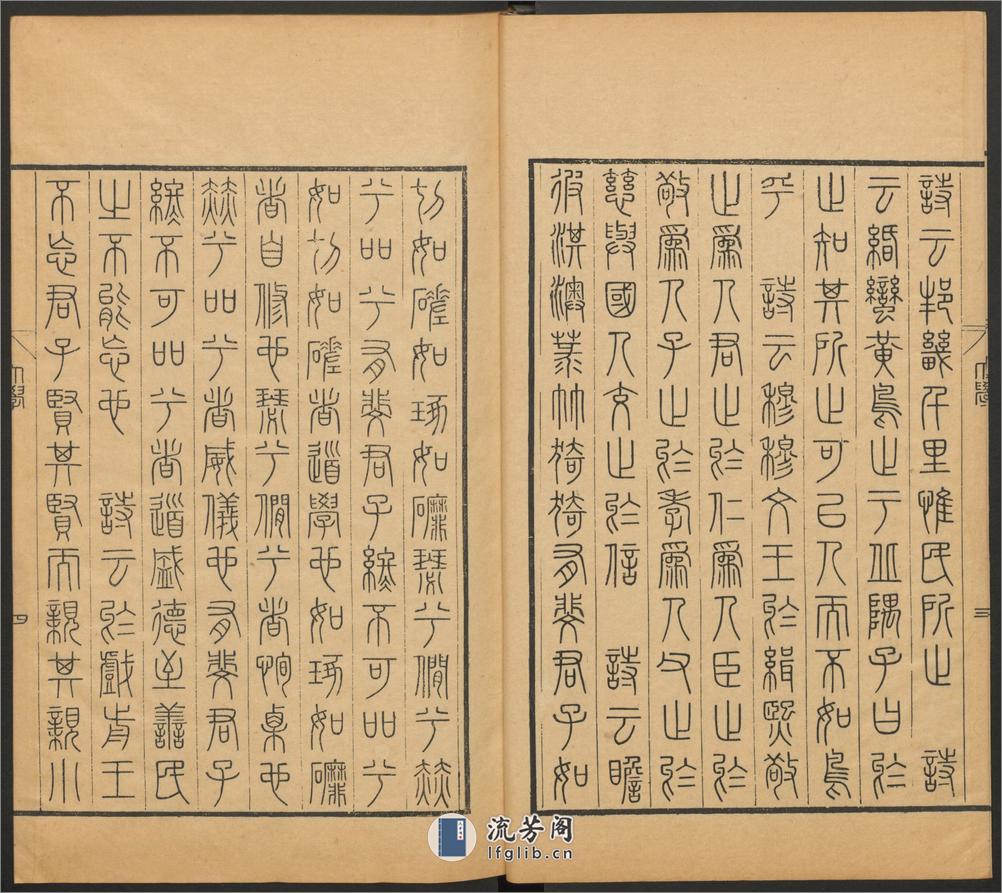 詩云邦畿千里惟民所止　詩
云緡蠻黃鳥止于丘隅子曰於
止知其所止可以人而不如鳥
乎　詩云穆穆文王於緝熙敬
止為人君止於仁為人臣止於
敬為人子止於孝為人父止於
慈與國人交止於信　詩云瞻
彼淇澳菉竹猗猗有斐君子如
大學　三
切如磋如琢如磨瑟兮僩兮赫
兮吅兮有斐君子終不可吅兮
如切如磋者道學也如琢如磨
者自修也瑟兮僩兮者恂栗也
赫兮吅兮者威儀也有斐君子
終不可吅兮者道盛德至善民
之不能忘也　詩云於戲前王
不忘君子賢其賢而親其親小
大學　四
流芳阁
lfglib.cn